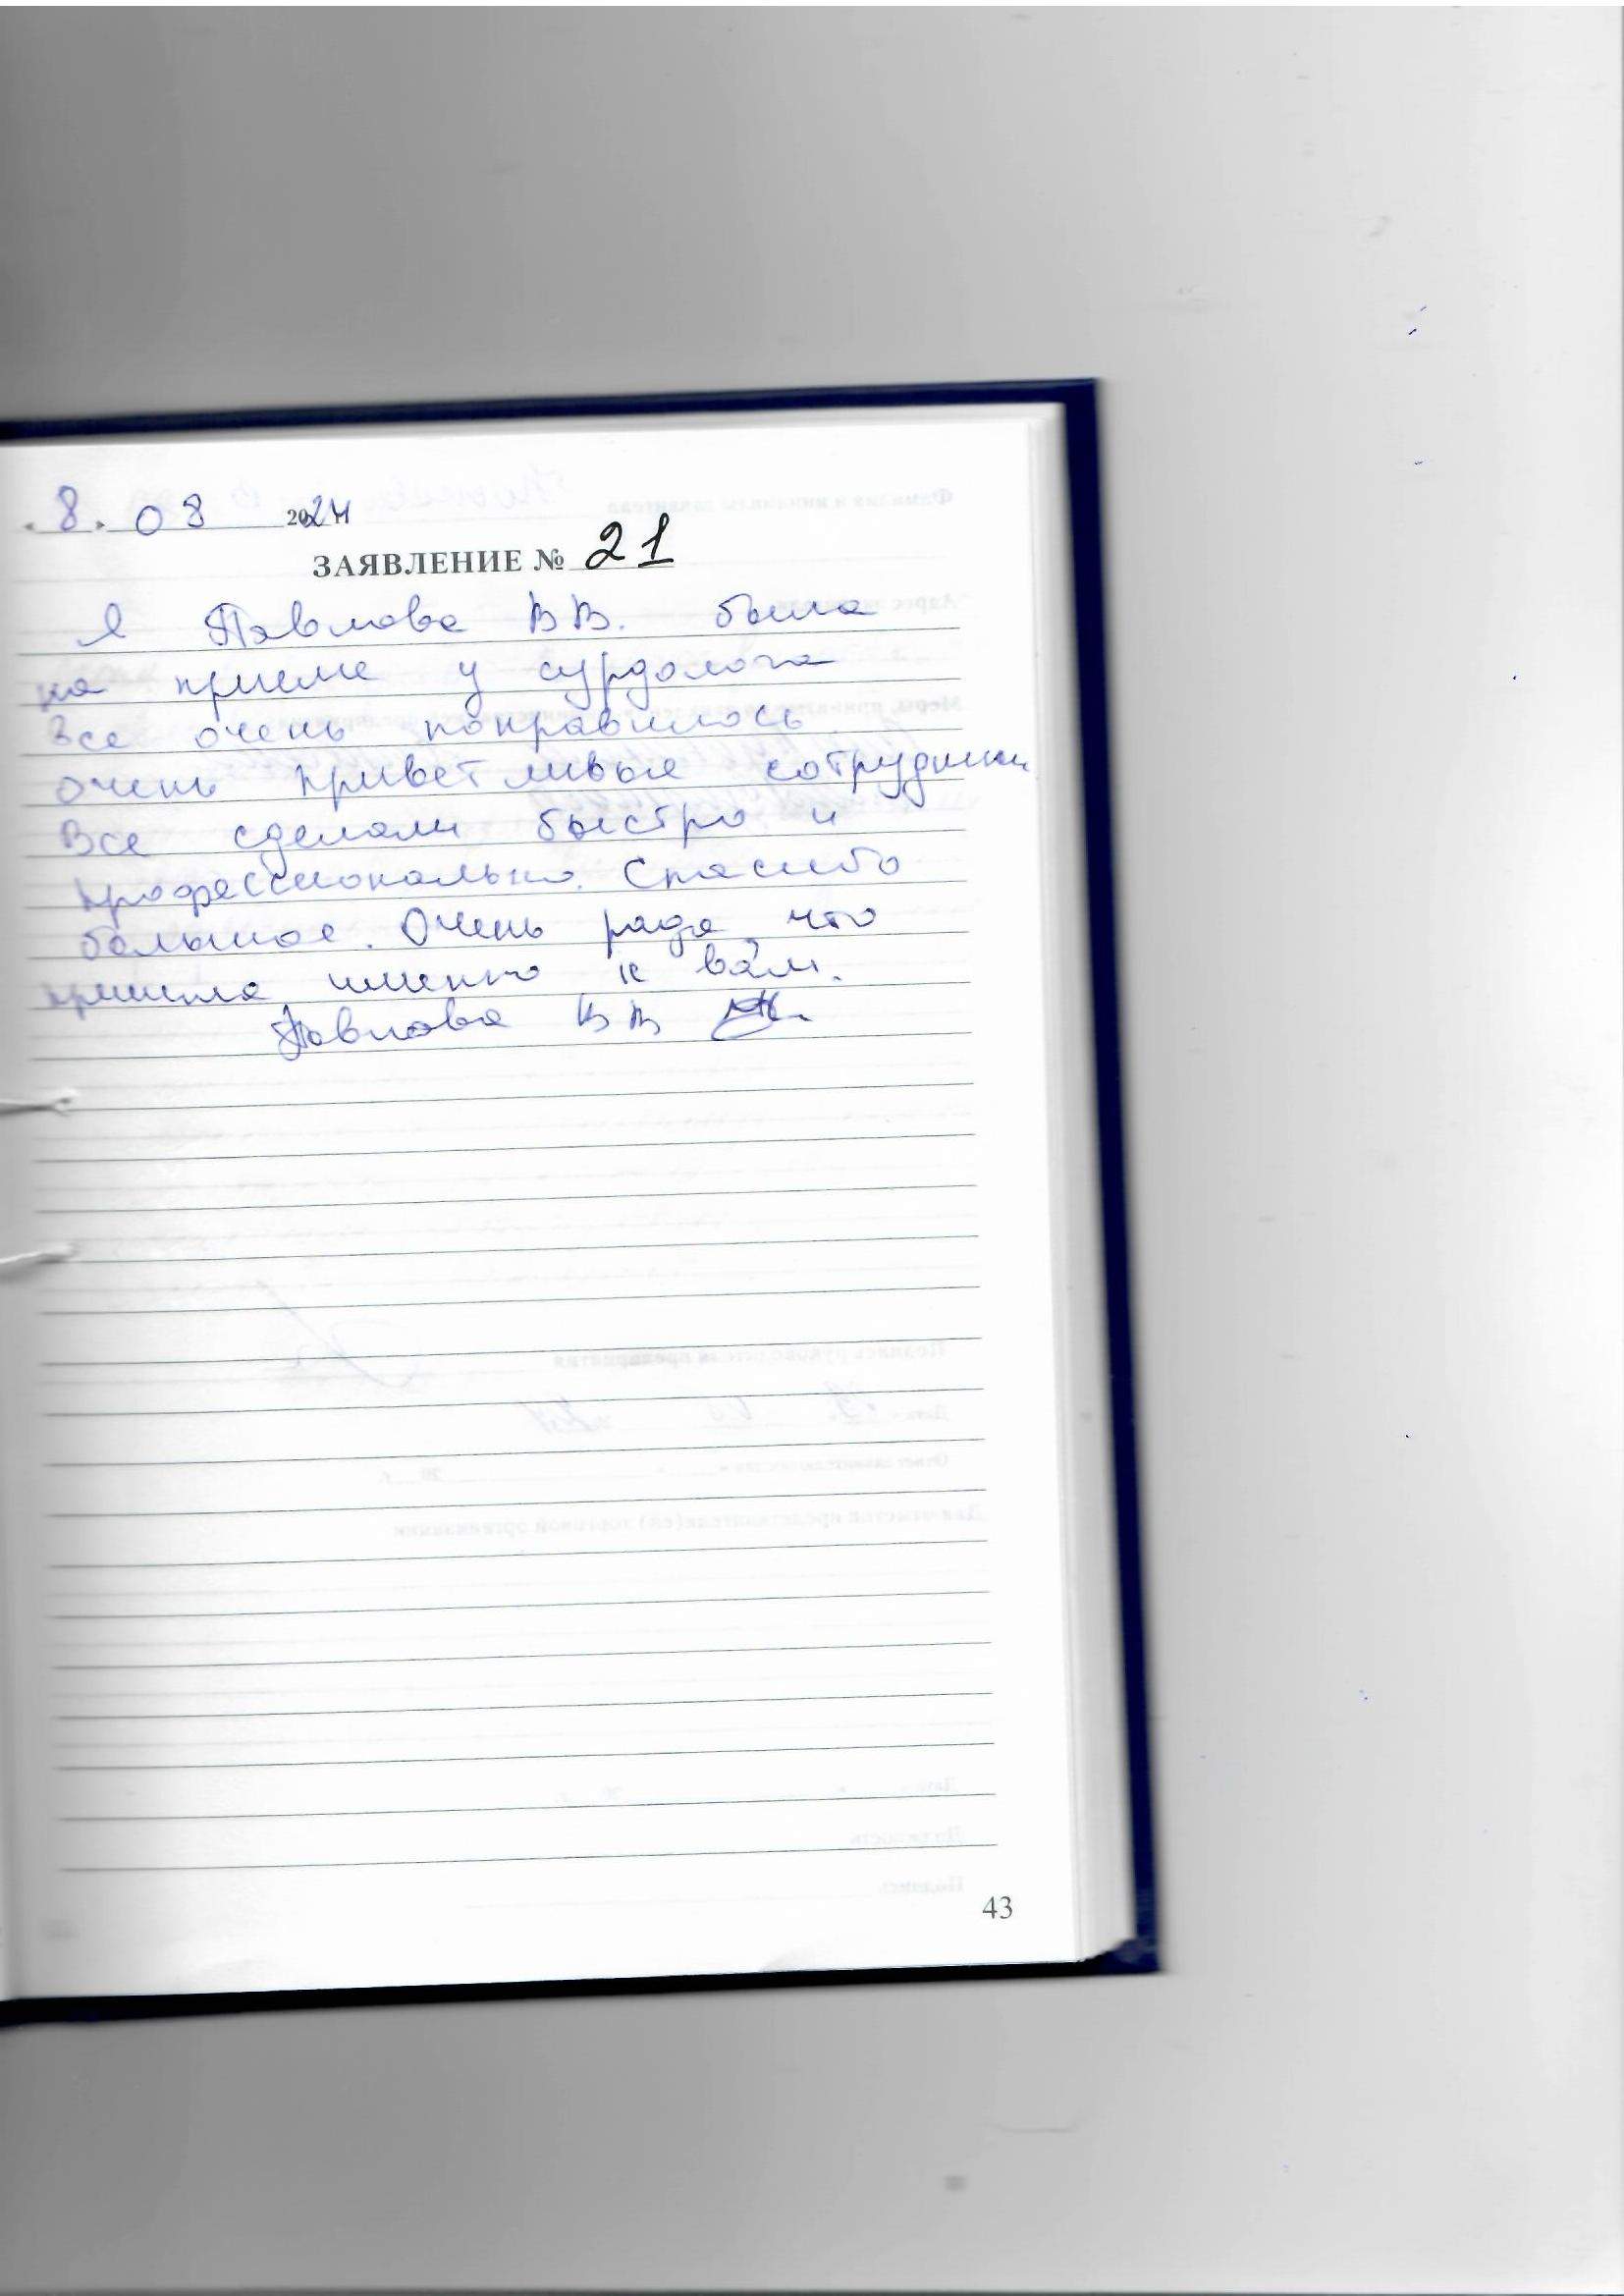 « 8 » 08 2024 г.
ЗАЯВЛЕНИЕ № 21
Я Павлова В В. была
на приеме у сурдолога
Все очень понравилось
очень приветливые сотрудники
Все сделали быстро и
профессионально. Спасибо
большое. Очень рада, что
пришла именно к вам.
Павлова В В
43